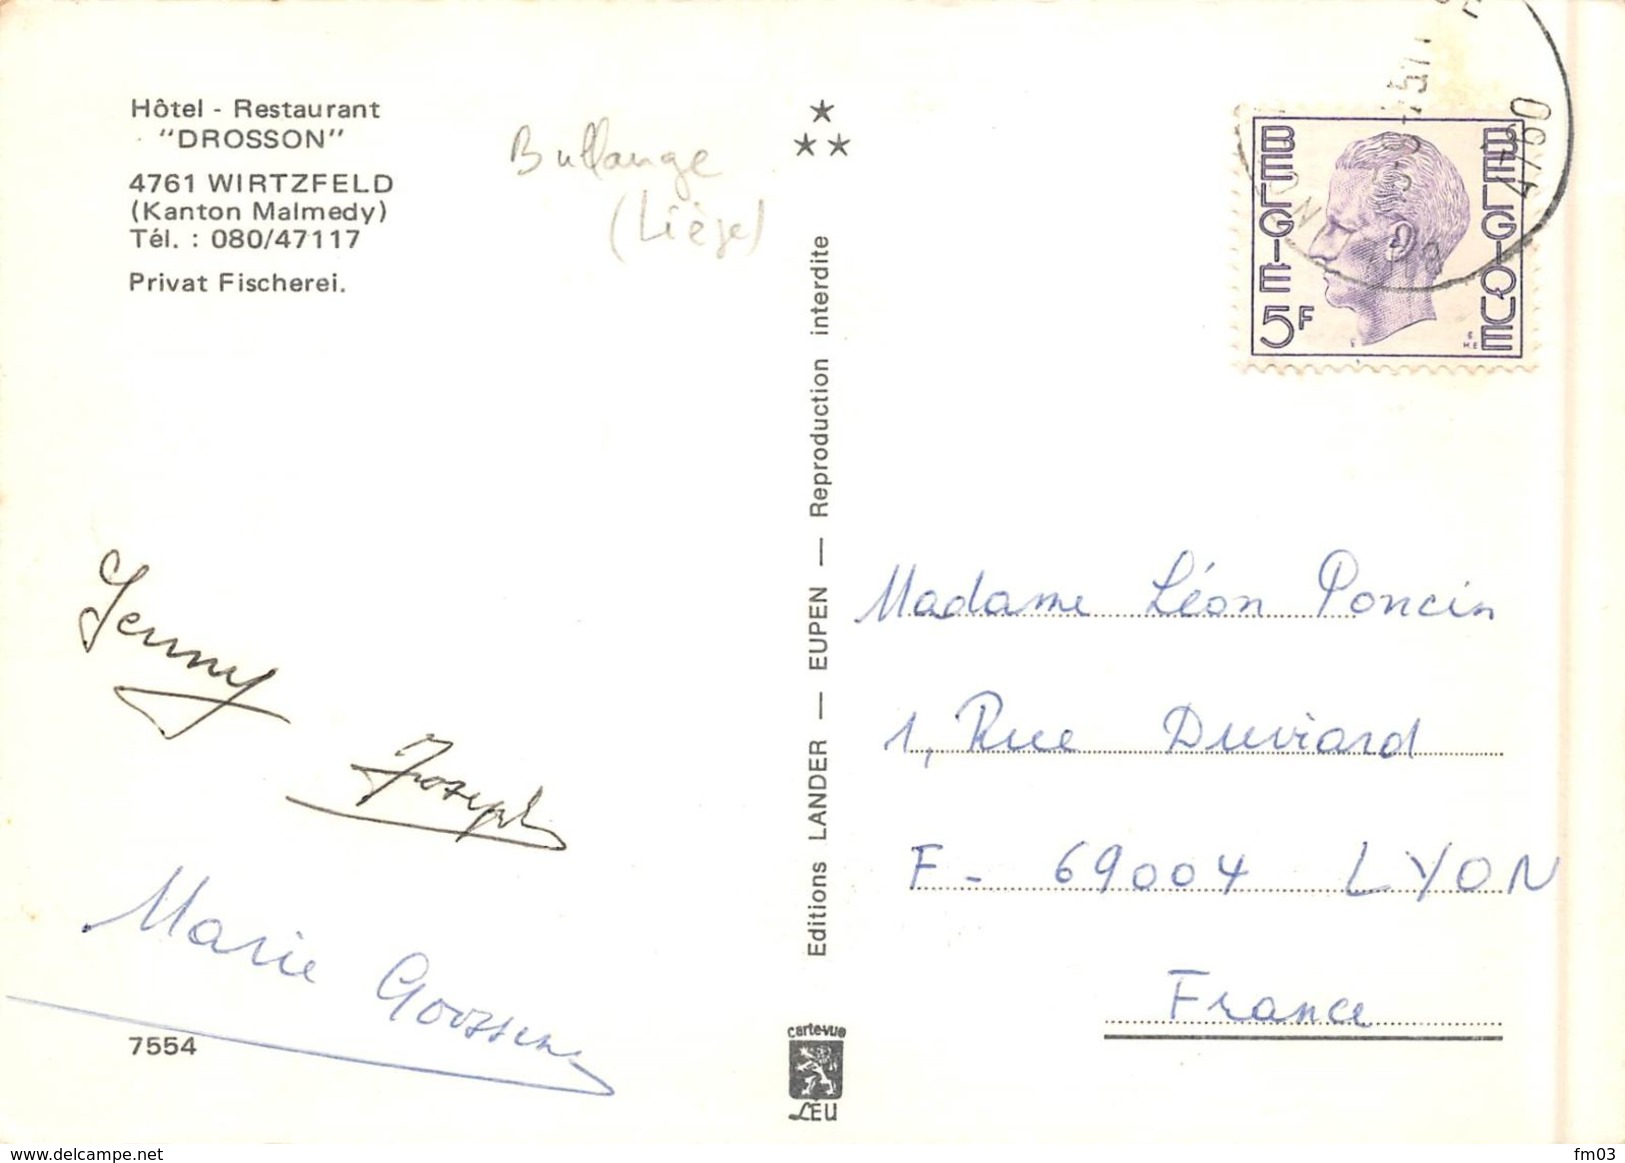 Hôtel - Restaurant
"DROSSON"
4761 WIRTZFELD
(Kanton Malmedy)
Tél. : 080/47117
Privat Fischerei.
Bullange
(Liège)
Jenny
Joseph
Marie Goossens
7554
Editions LANDER — EUPEN — Reproduction interdite
carte-vue
LÉU
4760
BELGIE 5F
BELGIQUE
Madame Léon Poncin
1, Rue Duviard
F - 69004 LYON
France
www.delcampe.net
fm03